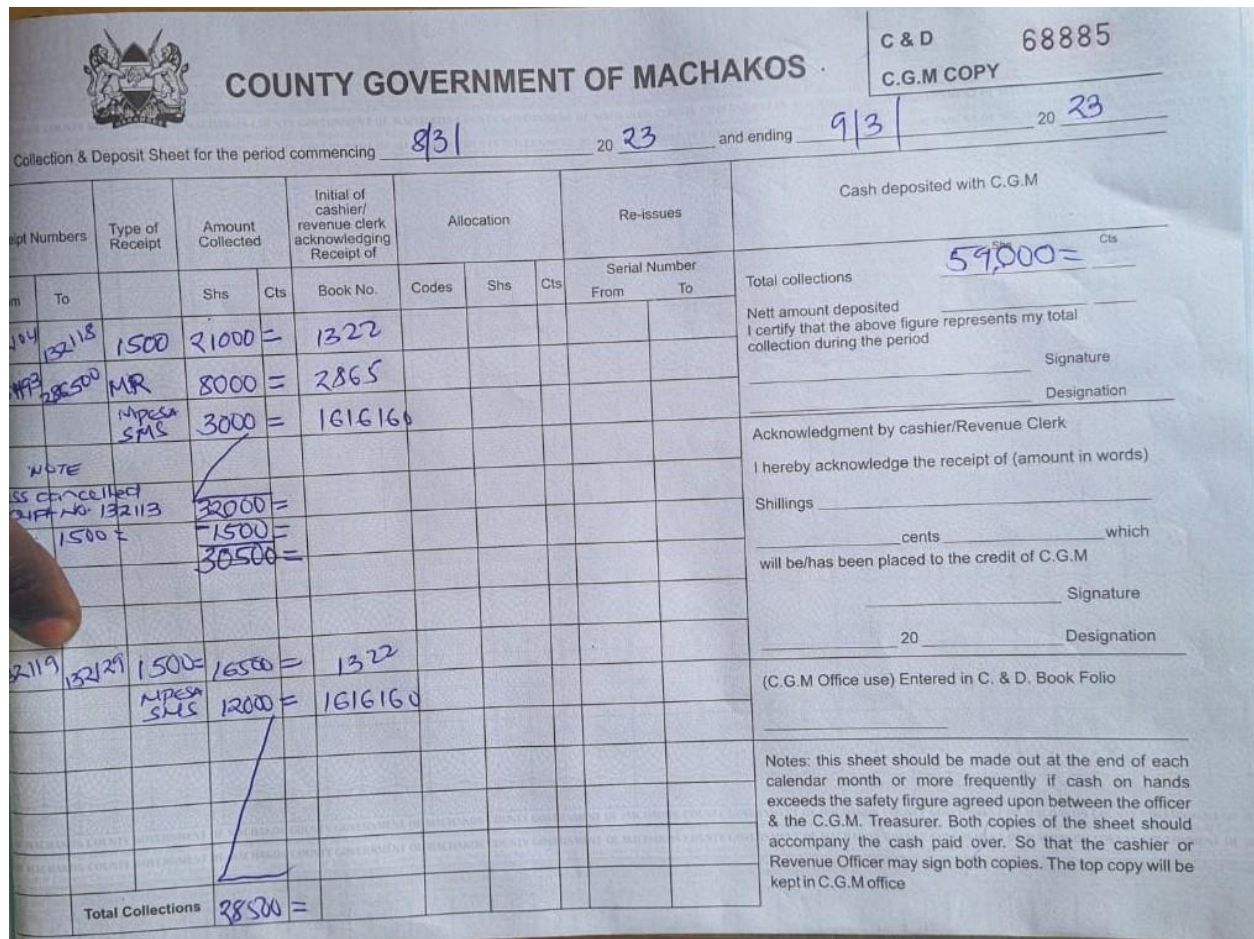 C & D 68885
C.G.M COPY
COUNTY GOVERNMENT OF MACHAKOS
Collection & Deposit Sheet for the period commencing 8/3/ 20 23 and ending 9/3/ 20 23
Numbers
Type of Receipt
Amount Collected
Initial of cashier/ revenue clerk acknowledging Receipt of
Allocation
Re-issues
To Shs Cts Book No. Codes Shs Cts
Serial Number
From To
132118 1500 21000= 1322
286500 MR 8000= 2865
MPESA SMS 3000= 1616160
NOTE
cancelled
NO. 132113 32000=
1500= -1500=
30500=
132129 1500= 16500= 1322
MPESA SMS 12000= 1616160
Total Collections 28500=
Cash deposited with C.G.M
Shs Cts
Total collections 59,000=
Nett amount deposited
I certify that the above figure represents my total
collection during the period
Signature
Designation
Acknowledgment by cashier/Revenue Clerk
I hereby acknowledge the receipt of (amount in words)
Shillings
cents which
will be/has been placed to the credit of C.G.M
Signature
20 Designation
(C.G.M Office use) Entered in C. & D. Book Folio
Notes: this sheet should be made out at the end of each
calendar month or more frequently if cash on hands
exceeds the safety firgure agreed upon between the officer
& the C.G.M. Treasurer. Both copies of the sheet should
accompany the cash paid over. So that the cashier or
Revenue Officer may sign both copies. The top copy will be
kept in C.G.M office